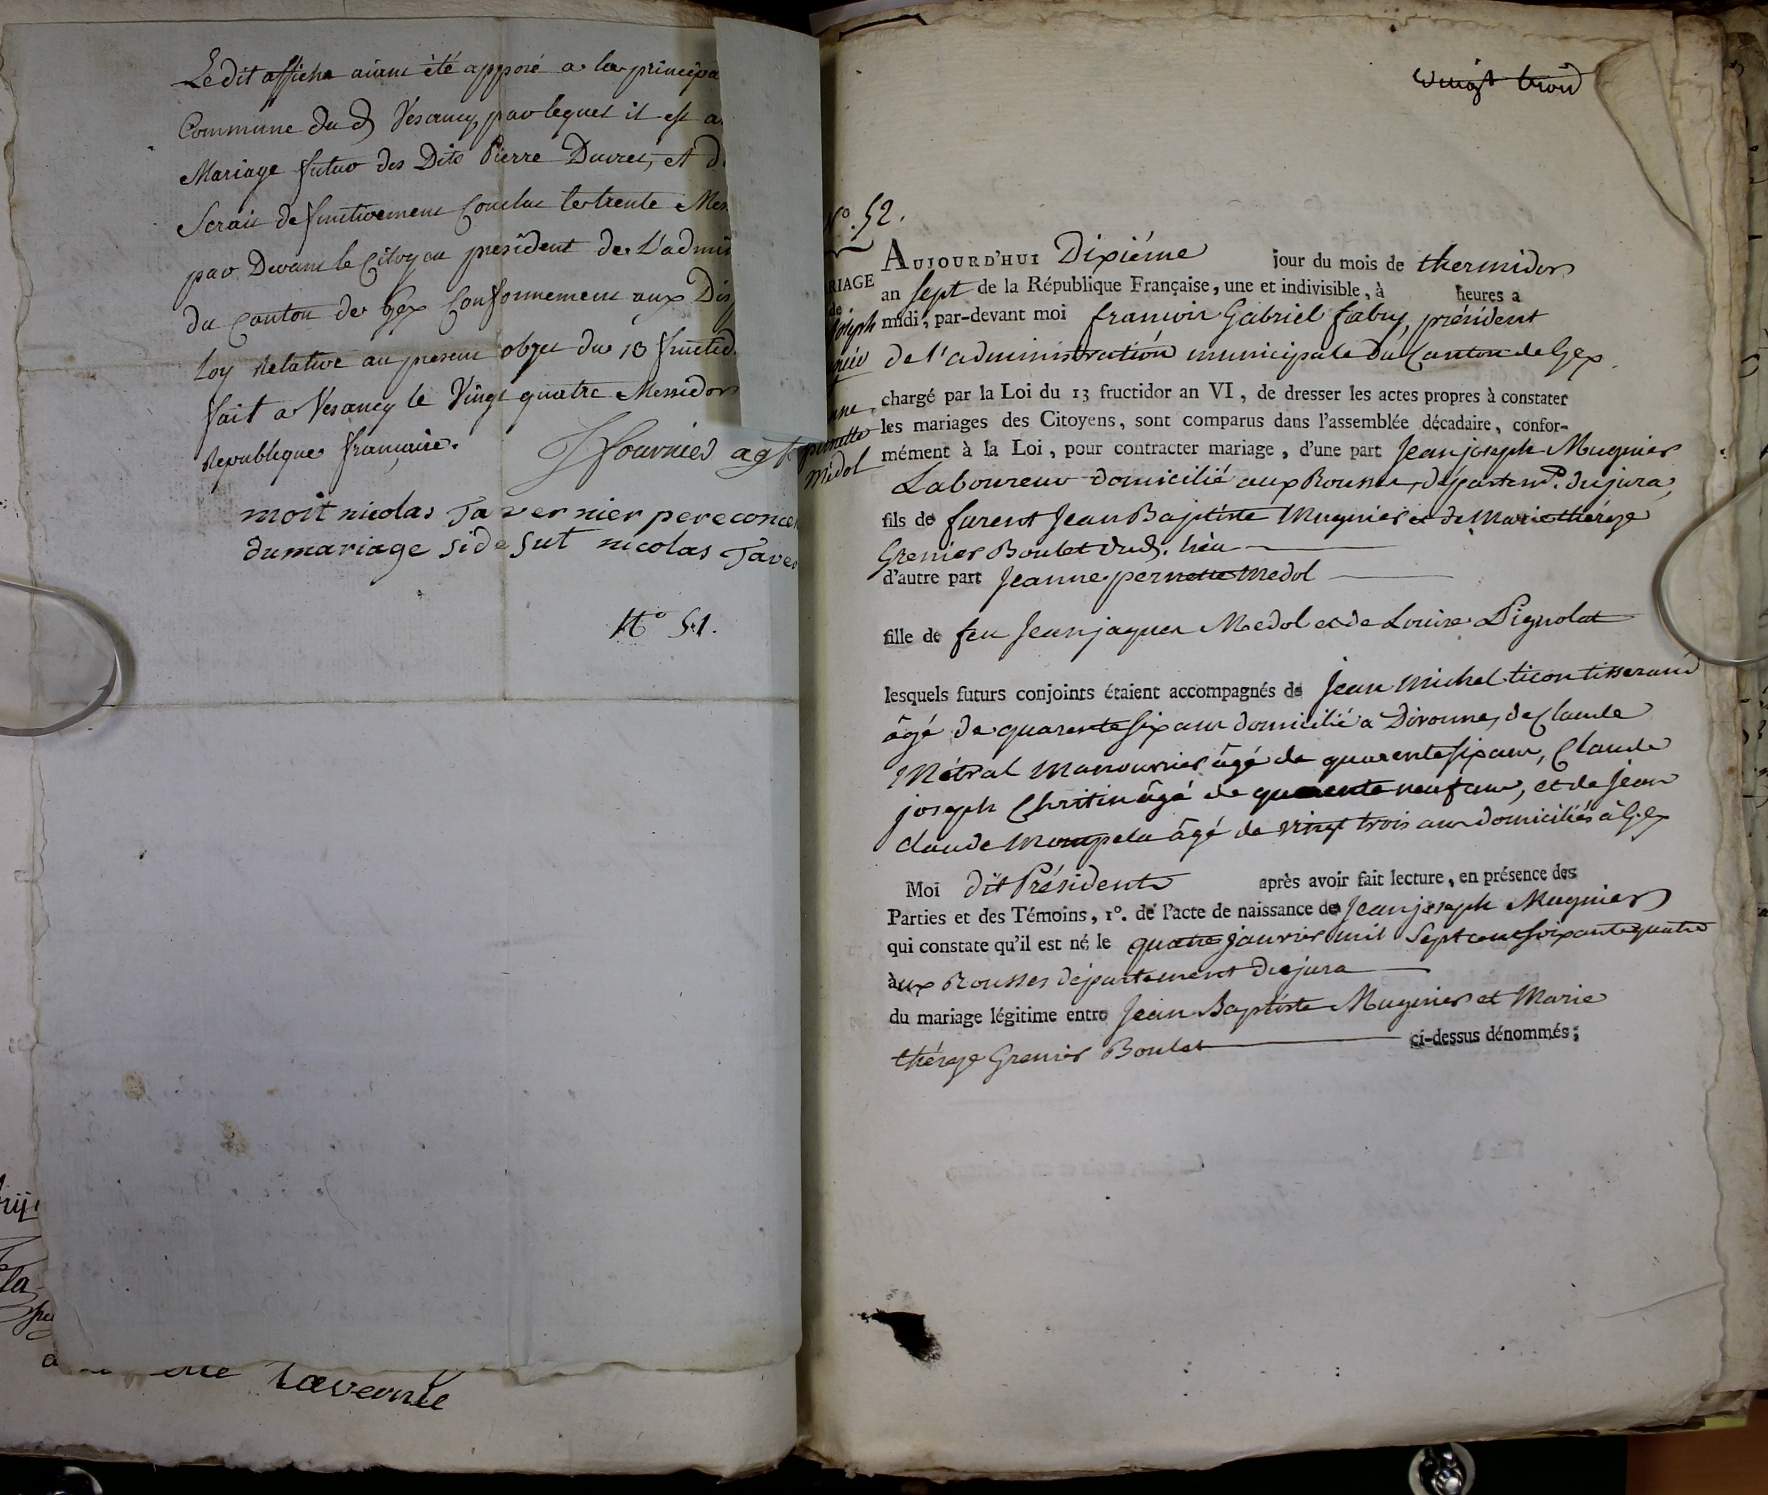 Ledit affiche aiant été apposé a la principa
Commune du d Vesancy, par lequel il est a
Mariage futur des Dits Pierre Duvret, et d
Serait definitivement Conclu le trente Mes
par Devant le Citoyen president de L'admi
du Canton de Gex Conformement aux Dis
Loy Relative au present objet du 13 fructid
fait a Vesancy le Vingt quatre Messidor
Republique française.
fournier agt
moit nicolas Tavernier pere conce
dumariage side sut nicolas Tave
N° 51.
la
Tavernie
vingt trois
N°. 52.
RIAGE
de
Joseph
nne
pernette
Médol
AUJOURD'HUI Dixiéme jour du mois de thermidor
an sept de la République Française, une et indivisible, à heures a
midi, par-devant moi francois Gabriel fabry, président
de l'administration municipale du Canton de Gex
chargé par la Loi du 13 fructidor an VI, de dresser les actes propres à constater
les mariages des Citoyens, sont comparus dans l'assemblée décadaire, confor-
mément à la Loi, pour contracter mariage, d'une part Jean joseph Mugnier
Laboureur domicilié aux Rousses, départemt. du jura,
fils de furent Jean Baptiste Mugnier et de Marie thereze
Grenier Boulet dud. lieu
d'autre part Jeanne pernette Medol
fille de feu Jean jaques Medol et de Louise Pignolat
lesquels futurs conjoints étaient accompagnés de Jean Michel ticon tisserand
âgé de quarente six ans domicilié a Divonne, de Claude
Métral Manouvrier âgé de quarente six ans, Claude
joseph Chritin âgé de quarente neuf ans, et de Jean
claude Monpela âgé de vingt trois ans domiciliés à Gex
Moi dit Président après avoir fait lecture, en présence des
Parties et des Témoins, 1°. de l'acte de naissance de Jean joseph Mugnier
qui constate qu'il est né le quatre janvier mil Sept cent soixante quatre
aux Rousses département du jura
du mariage légitime entre Jean Baptiste Mugnier et Marie
théreze Grenier Boulet ci-dessus dénommés;